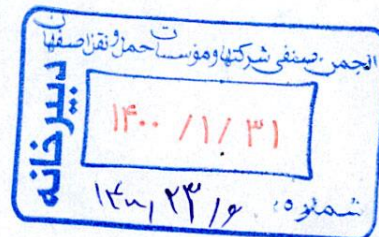 انجمن صنفی شرکتها و مؤسسات حمل و نقل اصفهان
دبیرخانه
۱۴۰۰ /۱/ ۳۱
شماره: